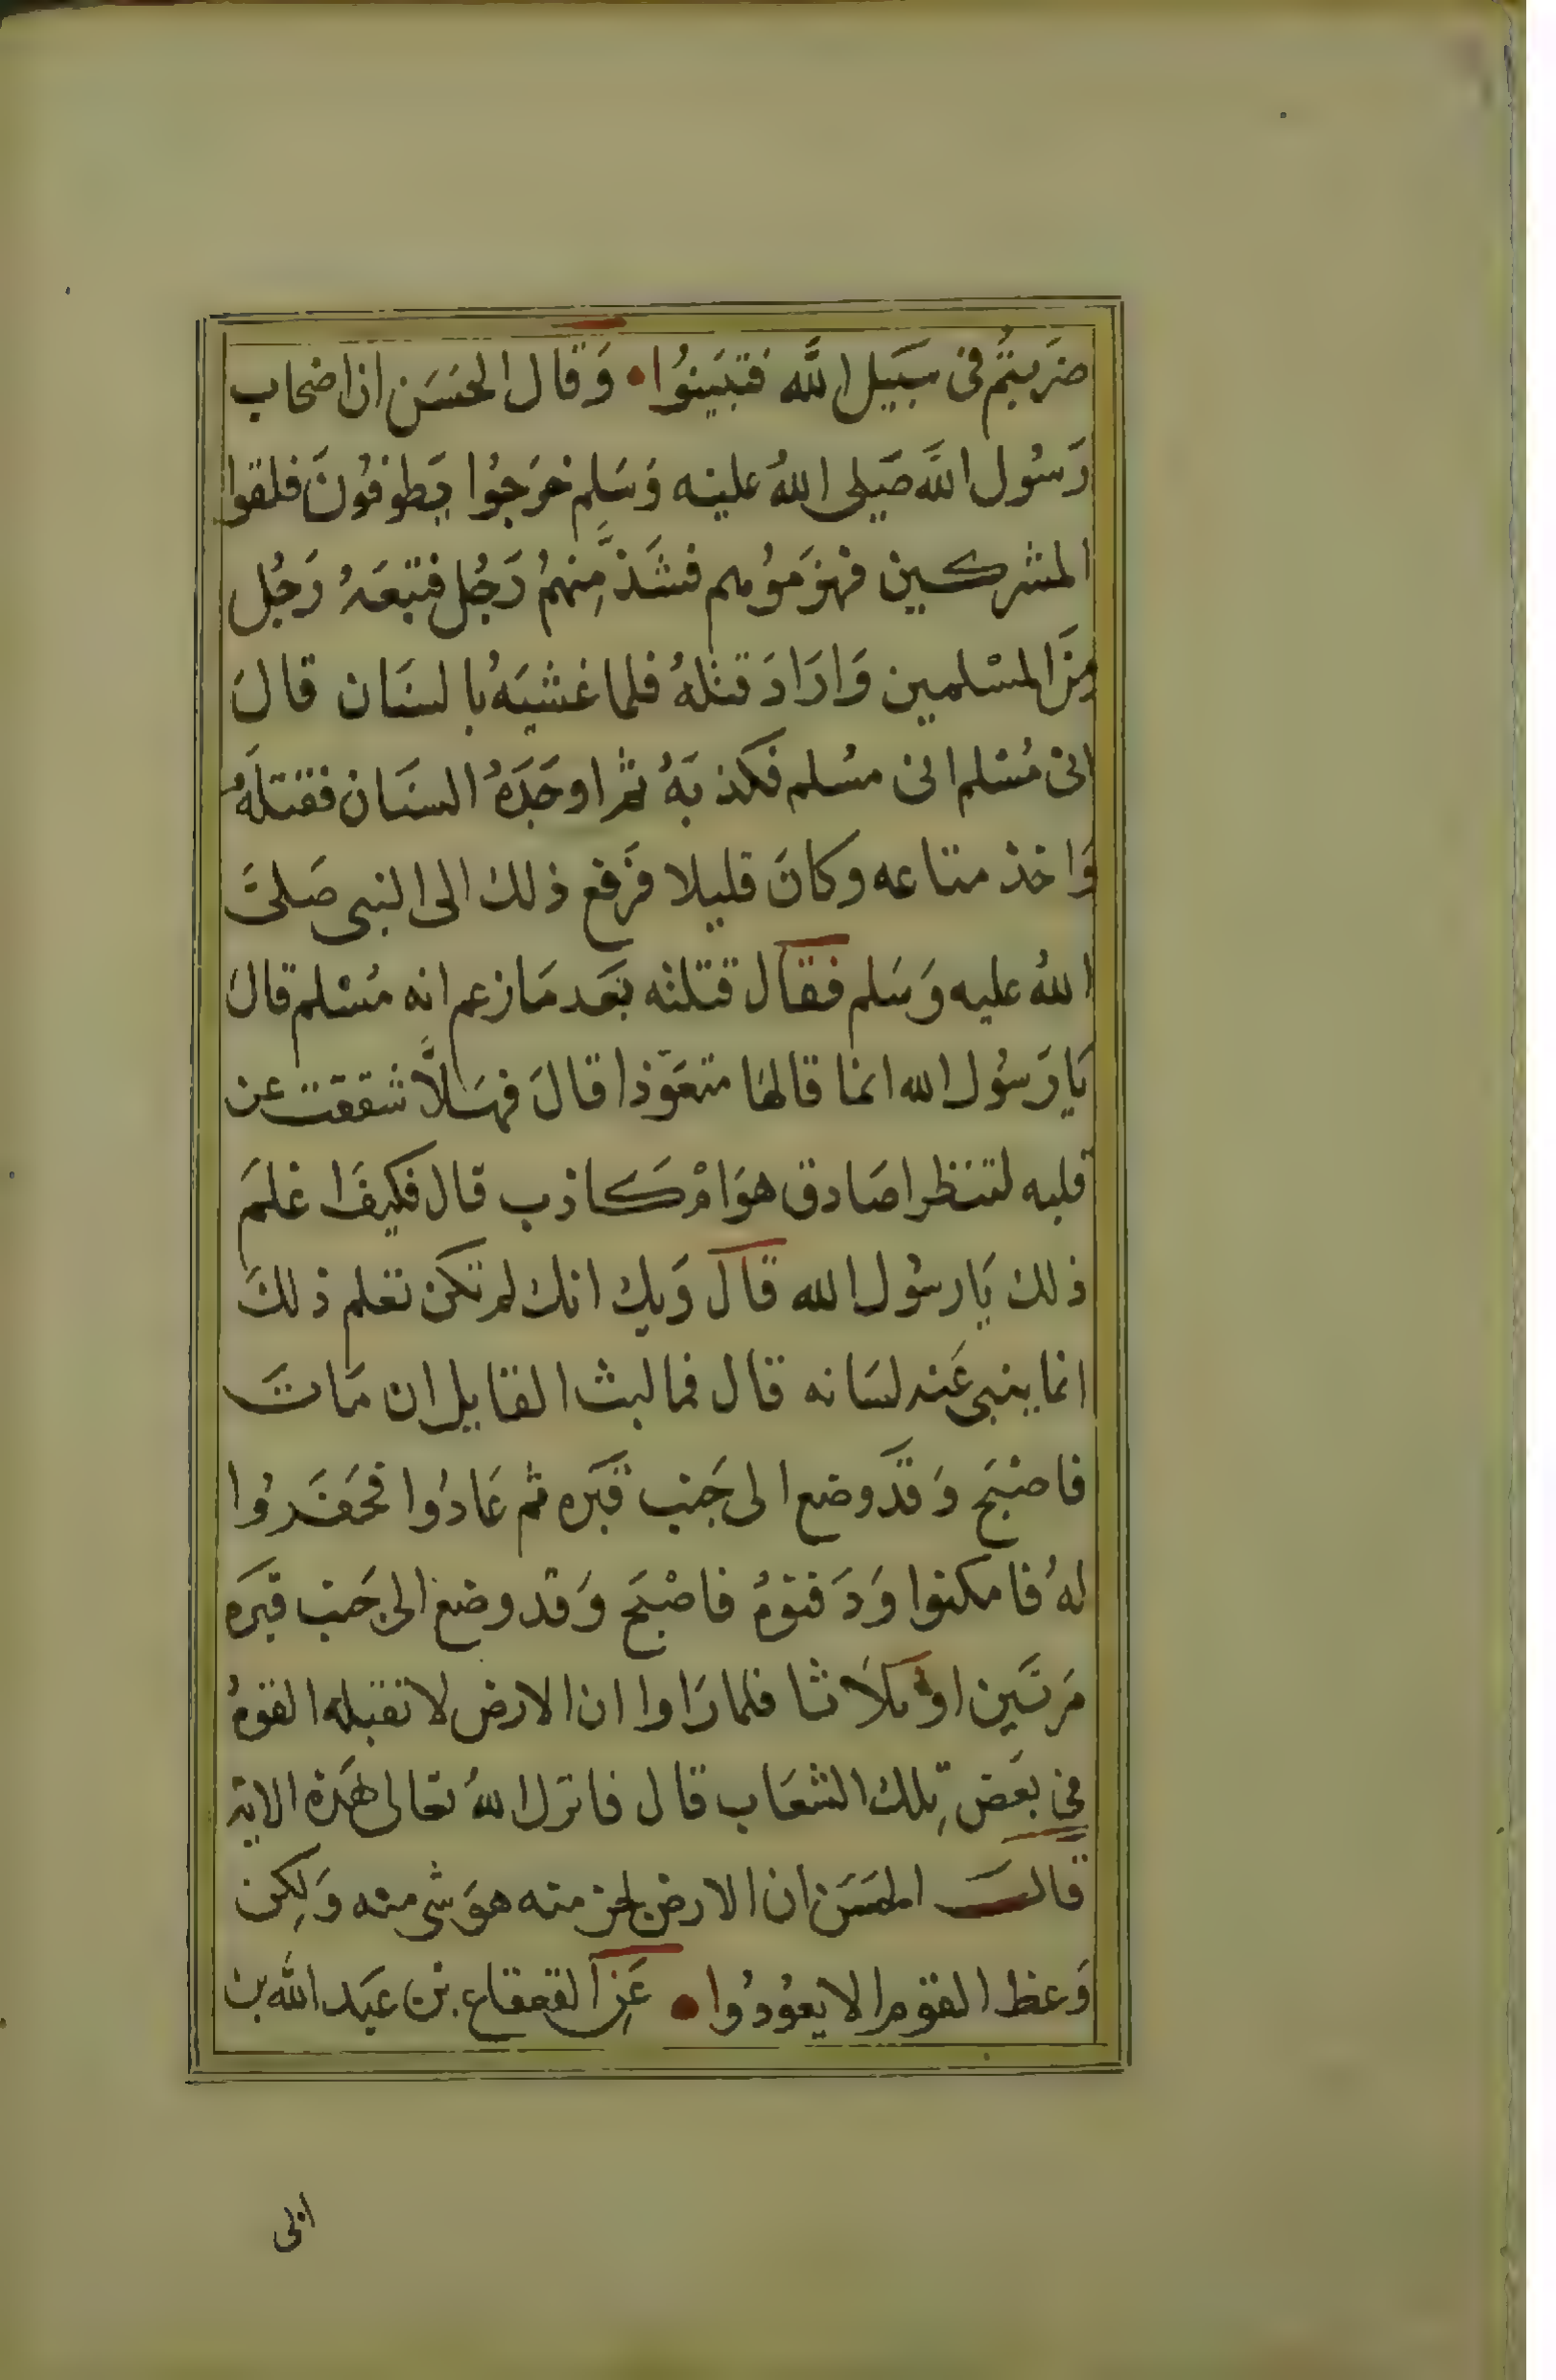 ضَرَبتُم فى سَبَيل الله فتَبَينُوا • وَقال الحسَن ان اصحاب
رَسُول الله صَلى اللهُ عليه وَسَلم خرَجُوا يَطوفونَ فلقوا
المشركين فهزمُوهم فشَذ مِنهمُ رَجُل فتبعَهُ رَجُل
مِنَ المسْلمين وَارَادَ قتلهُ فلما غشيَهُ بالسنَان قالَ
انى مُسْلم انى مسُلم فكذبَهُ ثم اوجَرَهُ السنَان فقتلهُ
وَاخذ متاعه وكانَ قليلا فرَفع ذلك الى النبى صَلىَّ
اللهُ عليه وَسَلم فقال قتلته بَعَد مَا زعم انه مُسْلم قالَ
يَا رَسُول الله انما قالهَا متعَوّذا قالَ فهَلاَّ شققت عن
قلبه لتنَظر اصَادق هوَ امْ كاذب قال فكيفَ اعْلمَ
ذلك يَا رسُول الله قال وَيك انك لم تكن تعلم ذلكَ
انما ينبى عَنه لسَانه قال فما لبث القايل ان مَاتَ
فاصْبَح وَقدَ وضع الى جَنب قبَره ثم عَادُوا فحَفَرُوا
لهُ فامكنوا وَدَفنوهُ فاصْبَح وَقد وضع الى جَنب قبَره
مَرتَين اوْ ثلاَثا فلما رَاوا ان الارض لا تقبله القوهُ
فى بَعَض تِلك الشعَاب قال فانزل اللهُ تعالى هَذه الاية
قالــ الحسَن ان الارض تجن منه هوَ شى منه وَلِكن
وَعظ القوم الا يعوُدُوا • عَنِ القعقاع بْن عبَد الله بن
ابى